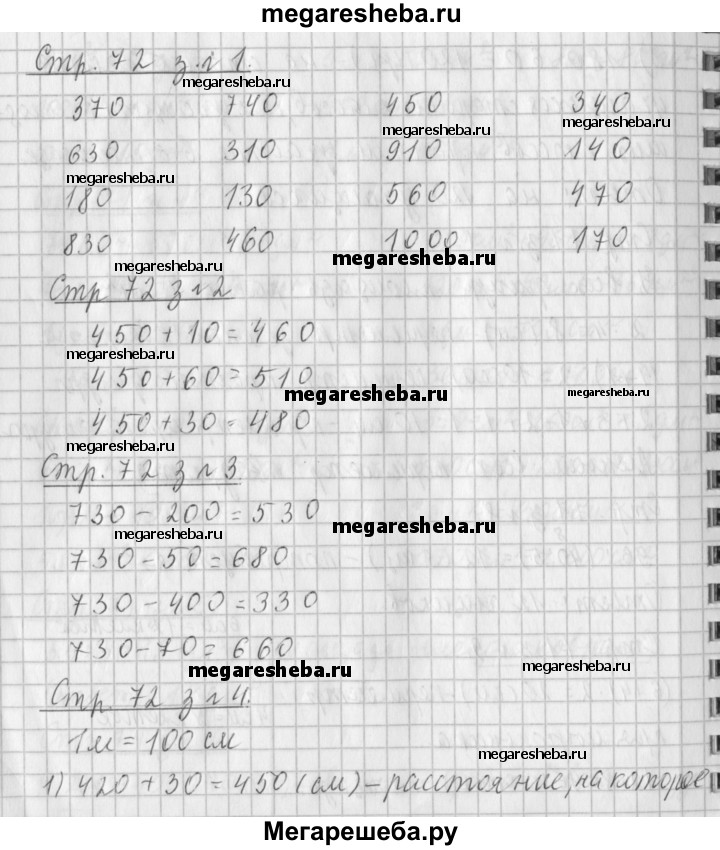 megaresheba.ru
Стр. 72 з. №1.
megaresheba.ru
370 740 450 340
megaresheba.ru megaresheba.ru
630 310 910 140
megaresheba.ru
180 130 560 470
830 460 1000 170
megaresheba.ru megaresheba.ru
Стр 72 з №2
450 + 10 = 460
megaresheba.ru
450 + 60 = 510
megaresheba.ru megaresheba.ru
450 + 30 = 480
megaresheba.ru
Стр. 72 з №3
730 - 200 = 530
megaresheba.ru megaresheba.ru
730 - 50 = 680
730 - 400 = 330
730 - 70 = 660
megaresheba.ru megaresheba.ru
Стр. 72 з №4.
1м = 100 см
megaresheba.ru
1) 420 + 30 = 450 (см) – расстояние, на которое
Мегарешеба.ру